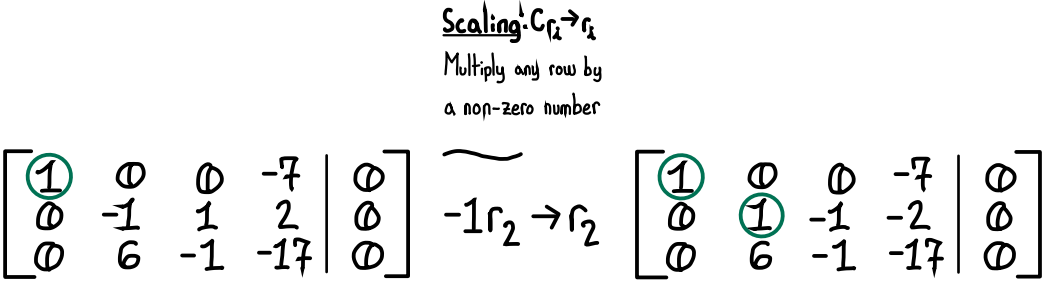 Scaling: Crᵢ→rᵢ
Multiply any row by
a non-zero number
1 0 0 -7 | 0
0 -1 1 2 | 0
0 6 -1 -17 | 0
-1r₂→r₂
1 0 0 -7 | 0
0 1 -1 -2 | 0
0 6 -1 -17 | 0